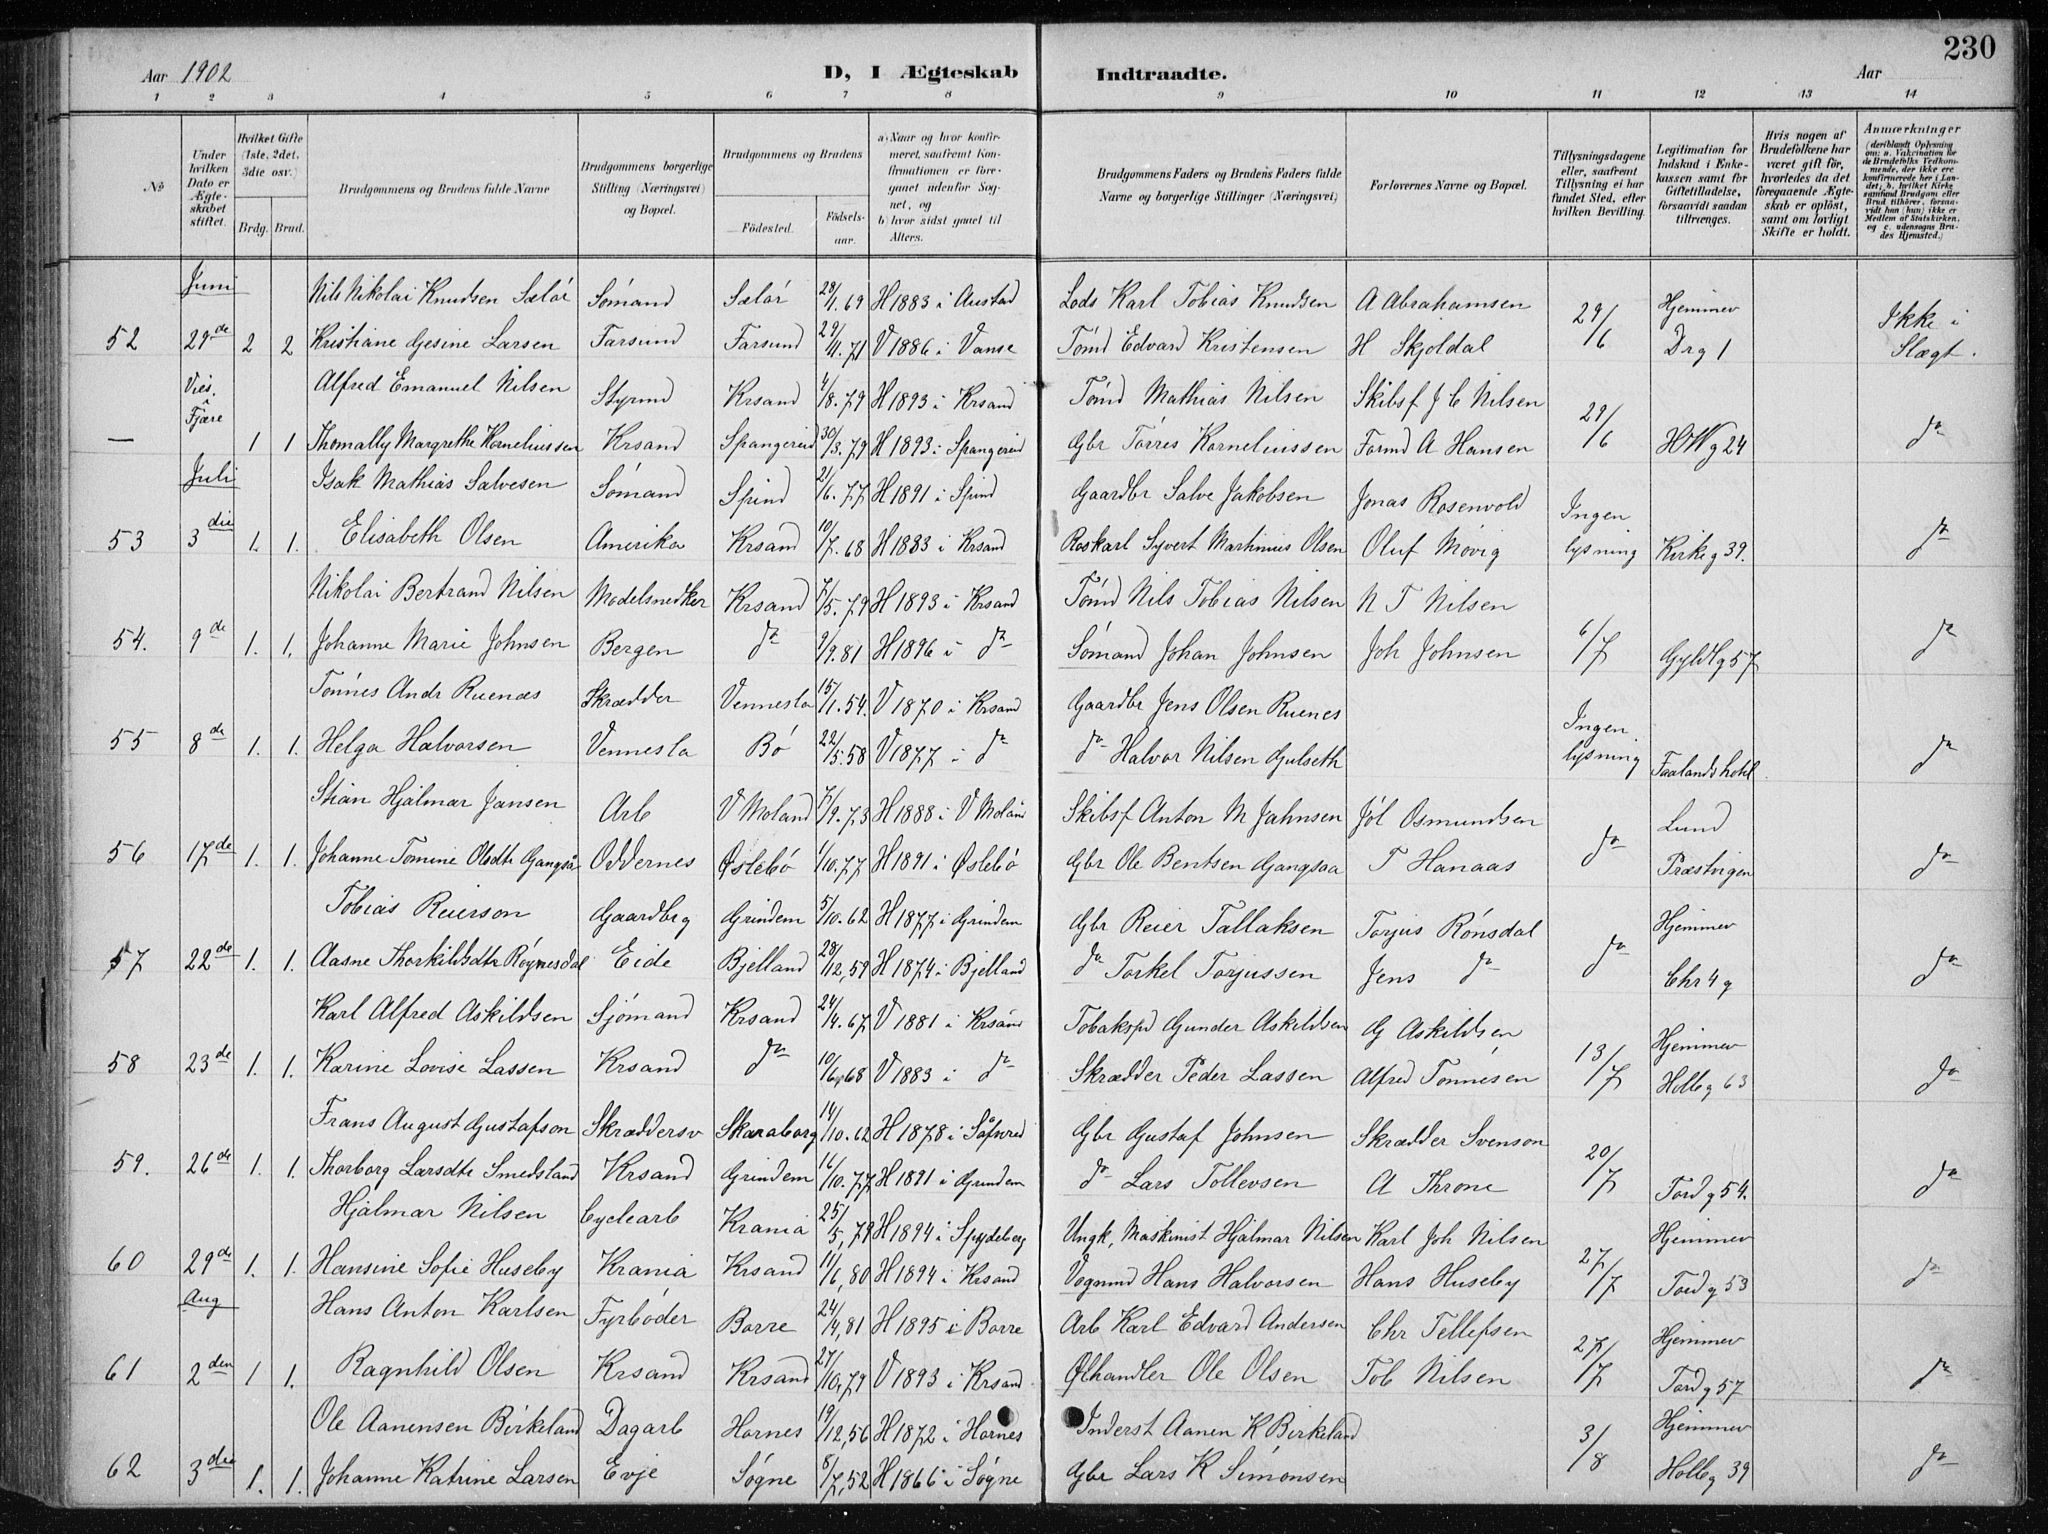 230
Aar 1902 D, I Ægteskab Indtraadte. Aar
1 2 3 4 5 6 7 8 9 10 11 12 13 14
№
Under hvilken Dato er Ægteskabet stiftet.
Hvilket Gifte (1ste, 2det, 3die osv.)
Brdg. Brud.
Brudgommens og Brudens fulde Navne
Brudgommens borgerlige Stilling (Næringsvei) og Bopæl.
Brudgommens og Brudens
Fødested. Fødselsaar.
a) Naar og hvor konfirmeret, saafremt Konfirmationen er foregaaet udenfor Sognet, og
b) hvor sidst gaaet til Alters.
Brudgommens Faders og Brudens Faders fulde Navne og borgerlige Stillinger (Næringsvei)
Forlovernes Navne og Bopæl.
Tillysningsdagene eller, saafremt Tillysning ei har fundet Sted, efter hvilken Bevilling.
Legitimation for Indskud i Enkekassen samt for Giftetilladelse, forsaavidt saadan tiltrænges.
Hvis nogen af Brudefolkene har været gift før, hvorledes da det foregaaende Ægteskab er opløst, samt om lovligt Skifte er holdt.
Anmærkninger (deriblandt Oplysning om: a. Vakcination for de Brudefolks Vedkommende, der ikke ere konfirmerede her i Landet; b. hvilket Kirkesamfund Brudgom eller Brud tilhører, forsaavidt han (hun) ikke er Medlem af Statskirken, og c. udensogns Brudes Hjemsted.)
Juni Nils Nikolai Knudsen Sælør Sømand Sælør 28/1.69 H 1883 i Austad Lods Karl Tobias Knudsen A Abrahamsen 29/6 Hjemmev Ikke i
52 29de 2 2 Kristiane Gesine Larsen Farsund Farsund 29/11.71 V 1886 i Vanse Tømd Edvard Kristensen H Skjoldal Drg 1 Slægt.
Vies. i Fjære Alfred Emanuel Nilsen Styrmd Krsand 4/8.79 H 1893 i Krsand Tømd Mathias Nilsen Skibsf J C Nilsen 29/6
— 1 1 Thomally Margrethe Korneliussen Krsand Spangereid 30/3.79 H 1893 i Spangereid Gbr Tørres Korneliussen Formd A Hansen HWg 24 do
Juli Isak Mathias Salvesen Sømand Spind 21/6.77 H 1891 i Spind Gaardbr Salve Jakobsen Jonas Rosenvold Ingen
53 3die 1. 1. Elisabeth Olsen Amerika Krsand 10/7.68 H 1883 i Krsand Roskarl Syvert Martinius Olsen Oluf Møvig lysning Kirkeg 39. do
Nikolai Bertrand Nilsen Modelsnedker Krsand 7/5.79 H 1893 i Krsand Tømd Nils Tobias Nilsen N T Nilsen
54. 9de 1. 1. Johanne Marie Johnsen Bergen do 9/9.81 H 1896 i do Sømand Johan Johnsen Joh Johnsen 6/7 Gyldlg 57 do
Tønnes Andr Ruenæs Skrædder Vennesla 15/1.54. V 1870 i Krsand Gaardbr Jens Olsen Ruenes Ingen
55 8de 1. 1. Helga Halvorsen Vennesla Bø 22/5.58 V 1877 i do do Halvor Nilsen Gulseth lysning Faalands hotel. do
Stian Hjalmar Jansen Arb V Moland 7/9.73 H 1888 i V Moland Skibsf Anton M Jahnsen Jøl Osmundsen Lund
56 17de 1. 1. Johanne Tomine Olsdtr Gangså Oddernes Øslebø 1/10.77 H 1891 i Øslebø Gbr Ole Bentsen Gangsaa T Hanaas do Præstvigen do
Tobias Reierson Gaardbrg Grindem 5/10.62 H 1877 i Grindem Gbr Reier Tallaksen Torjus Rønsdal Hjemmev
57 22de 1. 1. Aasne Thorkildsdtr Røynesdal Eide Bjelland 28/12,59 H 1874 i Bjelland do Torkel Torjussen Jens do do Chr 4 g do
Karl Alfred Askildsen Sjømand Krsand 24/4.67 V 1881 i Krsand Tobakspd Gunder Askildsen G Askildsen Hjemmev
58 23de 1. 1. Karine Lovise Lassen Krsand do 10/6.68 V 1883 i do Skrædder Peder Lassen Alfred Tønnesen 13/7 Holbg 63 do
Frans August Gustafson Skræddersv Skaraborg 14/10.62 H 1878 i Gbr Gustaf Johnsen Skrædder Svenson
59. 26de 1. 1. Thorborg Larsdtr Smedsland Krsand Grindem 16/10.77 H 1891 i Grindem do Lars Tollevsen A Throne 20/7 Tordg 54. do
Hjalmar Nilsen Cyclearb Krania 25/5,79 H 1894 i Spydeberg Ungk, Maskinist Hjalmar Nilsen Karl Joh Nilsen Hjemmev
60 29de 1. 1. Hansine Sofie Huseby Krania Krsand 11/6,80 H 1894 i Krsand Vognmd Hans Halvorsen Hans Huseby 27/7 Tordg 53 do
Aug Hans Anton Karlsen Fyrbøder Borre 24/4,81 H 1895 i Borre Arb Karl Edvard Andersen Chr Tellefsen Hjemmev
61 2den 1 1. Ragnhild Olsen Krsand Krsand 27/10,79 V 1893 i Krsand Ølhandler Ole Olsen Tob Nilsen 27/7 Tordg 57 do
Ole Aanensen Birkeland Dagarb Hornes 19/12,56 H 1872 i Hornes Inderst Aanen K Birkeland Hjemmev
62 3die 1. 1. Johanne Katrine Larsen Evje Søgne 8/7,52 H 1866 i Søgne Gbr Lars K Simonsen 3/8 Holbg 39 do